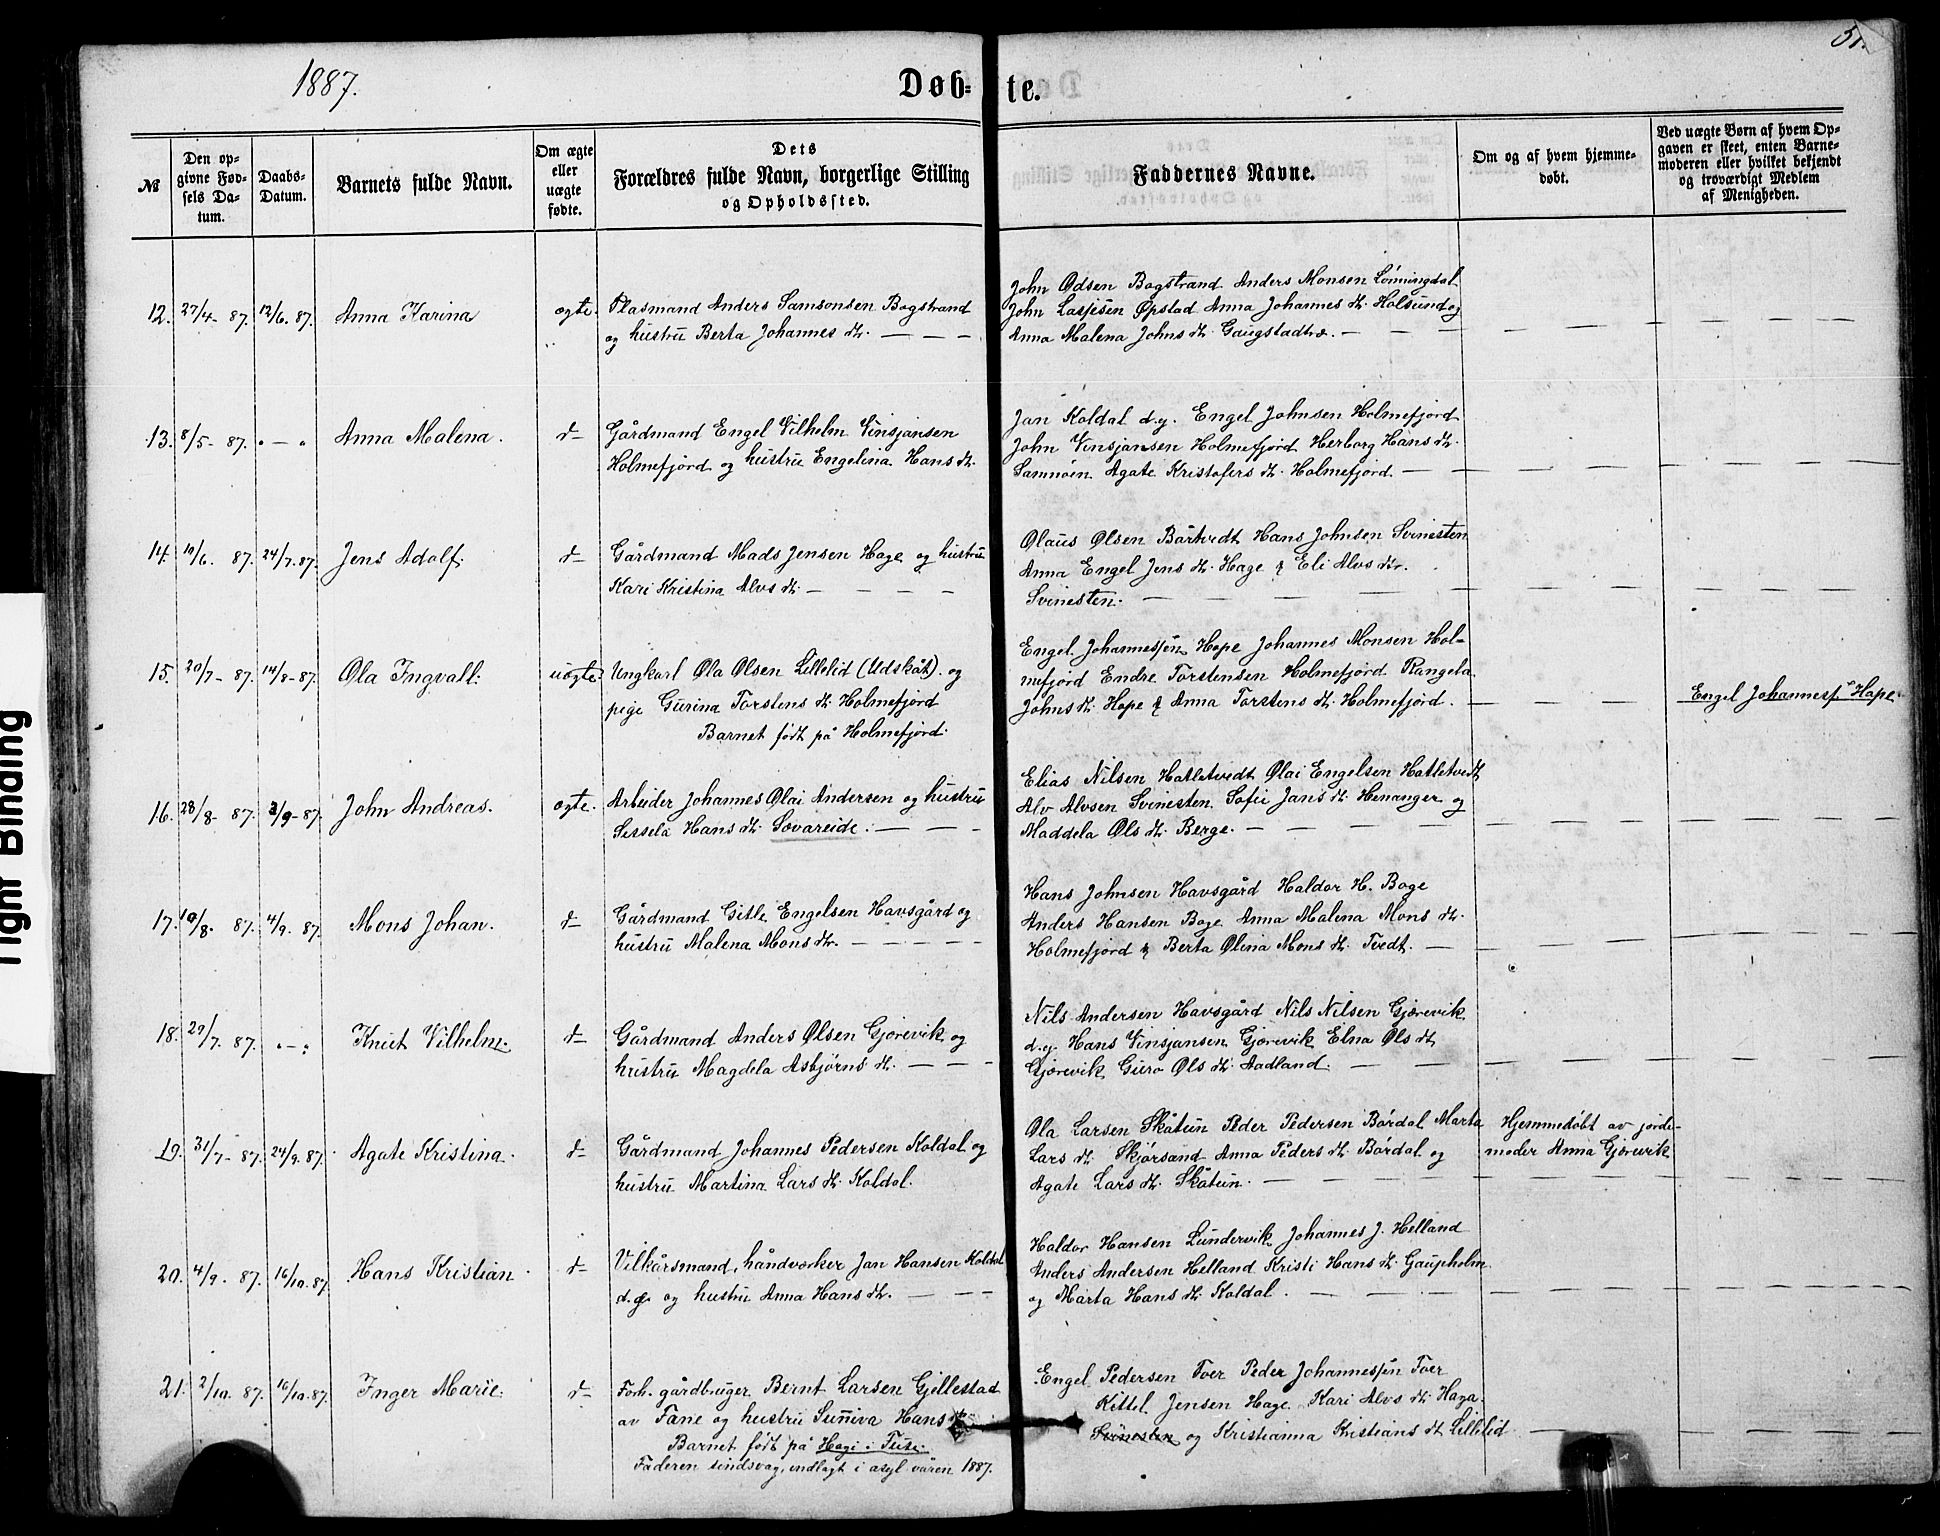 1887.
Døb-te.
51.
№
Den opgivne Fødsels Datum.
Daabs-Datum.
Barnets fulde Navn.
Om ægte eller uægte fødte.
Dets Forældres fulde Navn, borgerlige Stilling og Opholdssted.
Faddernes Navne.
Om og af hvem hjemmedøbt.
Ved uægte Børn af hvem Opgaven er skeet, enten Barnemoderen eller hvilket bekjendt og troværdigt Medlem af Menigheden.
12. 27/4- 87. 12/6. 87. Anna Karina ægte.
Plasmand Anders Samsonsen Bogstrand
og hustru Berta Johannes dt. — — —
John Odsen Bogstrand Anders Monsen Lønningdal
John Lassesen Øpstad Anna Johannes dt. Holsund og
Anna Malena Johns dt. Gaugstadtræ. — — —
13. 8/5- 87. " — " Anna Malena. d—
Gårdmand Engel Vilhelm Vinsjansen
Holmefjord og hustru Engelina Hans dt.
Jan Koldal d.y. Engel Johnsen Holmefjord
John Vinsjansen Holmefjord Herborg Hans dt.
Samnøen Agate Kristofers dt. Holmefjord —
14. 10/6. 87. 24/7. 87. Jens Adolf. d—
Gårdmand Mads Jensen Hage og hustru
Kari Kristina Alvs dt. — — — —
Olaus Olsen Bårtvedt Hans Johnsen Svinesten
Anna Engel Jens dt. Hage & Eli Alvs dtr.
Svinesten. — — —
15. 20/7- 87. 14/8- 87. Ola Ingvall. uægte.
Ungkarl Ola Olsen Lillelid (Udskåt). og
pige Gurina Torstens dt. Holmefjord
Barnet født på Holmefjord.
Engel Johannessen Hope Johannes Monsen Hol-
mefjord Endre Torstensen Holmefjord Rangela
Johns dt. Hope & Anna Torstens dt. Holmefjord.
Engel Johanness. Hope
16. 28/8- 87. 3/9- 87. John Andreas. ægte.
Arbeider Johannes Olai Andersen og hustru
Sessela Hans dt. Sævareide. — — —
Elias Nilsen Hatletvedt Olai Engelsen Hatletvedt
Alv Alvsen Svinesten. Sofie Jans dt. Henanger og
Maddela Ols dt. Berge. — — — —
17. 19/8. 87. 4/9. 87. Mons Johan. d—
Gårdmand Gitle Engelsen Havsgård og
hustru Malena Mons dt. — — — —
Hans Johnsen Havsgård Haldor H. Boge
Anders Hansen Boge Anna Malena Mons dt.
Holmefjord & Berta Olina Mons dt. Tvedt. —
18. 29/7. 87. " — " Knut Vilhelm. d—
Gårdmand Anders Olsen Gjørevik og
hustru Magdela Asbjørns dt. — — —
Nils Andersen Havsgård Nils Nilsen Gjørevik
d.y. Hans Vinsjansen Gjørevik Elna Ols dt
Gjørevik Guro Ols dt. Aadland. — —
19. 31/7- 87. 24/9. 87. Agate Kristina. d—
Gårdmand Johannes Pedersen Koldal og
hustru Martina Lars dt. Koldal.
Ola Larsen Skåtun Peder Pedersen Bårdal Marta
Lars dt. Skjørsand Anna Peders dt. Bårdal og
Agate Lars dt. Skåtun. — — — —
Hjemmedøbt av jorde-
moder Anna Gjørevik
20. 4/9. 87. 16/10. 87. Hans Kristian. d—
Vilkårsmand, håndværker Jan Hansen Koldal
d.æ. og hustru Anna Hans dt. — — —
Haldor Hansen Lundervik Johannes J. Helland
Anders Andersen Helland Kristi Hans dt. Gaupholm
og Marta Hans dt. Koldal. — — —
21. 2/10. 87. 16/10. 87. Inger Marie. d—
Forh. gårdbruger Bernt Larsen Gjellestad
av Fane og hustru Sunniva Hans dt.
Barnet født på Hagi i Fuse.
Faderen sindsvag, indlagt i asyl våren 1887.
Engel Pedersen Tver Peder Johannessen Tver
Kittel Jensen Hage Kari Alvs dt. Haga.
Svinesten og Kristianna Kristians dt. Lillelid
Tight Binding